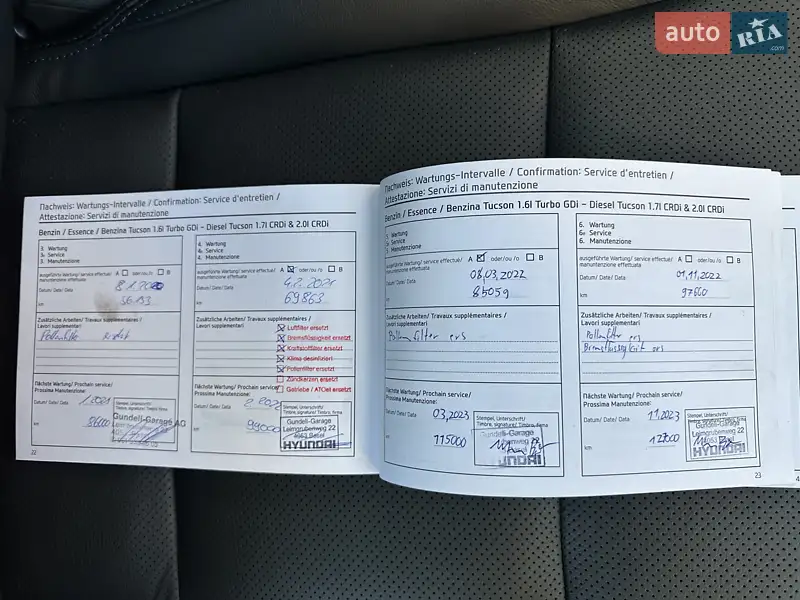 auto RIA .com
Nachweis: Wartungs-Intervalle / Confirmation: Service d'entretien /
Attestazione: Servizi di manutenzione
Benzin / Essence / Benzina Tucson 1.6l Turbo GDi – Diesel Tucson 1.7l CRDi & 2.0l CRDi
3. Wartung
3e Service
3. Manutenzione
ausgeführte Wartung/ service effectué/ A oder/ou/o B
manutenzione effettuata
Datum/ Date/ Data 8.1.2020
km 56193
Zusätzliche Arbeiten/ Travaux supplémentaires /
Lavori supplementari
Nächste Wartung/ Prochain service/
Prossima Manutenzione:
Datum/ Date/ Data 1.2021
km 86000
Stempel, Unterschrift/
Timbre, signature/ Timbro, firma
Gundeli-Garage AG
22
4. Wartung
4e Service
4. Manutenzione
ausgeführte Wartung/ service effectué/ A oder/ou/o B
manutenzione effettuata
Datum/ Date/ Data 4.2.2021
km 69863
Zusätzliche Arbeiten/ Travaux supplémentaires /
Lavori supplementari
Luftfilter ersetzt
Bremsflüssigkeit ersetzt
Kraftstofffilter ersetzt
Klima desinfiziert
Pollenfilter ersetzt
Zündkerzen ersetzt
Getriebe / ATOel ersetzt
Nächste Wartung/ Prochain service/
Prossima Manutenzione:
Datum/ Date/ Data 2.2022
km 99000
Stempel, Unterschrift/
Timbre, signature/ Timbro, firma
Gundeli-Garage
Leimgrubenweg 22
4053 Basel
HYUNDAI
Nachweis: Wartungs-Intervalle / Confirmation: Service d'entretien /
Attestazione: Servizi di manutenzione
Benzin / Essence / Benzina Tucson 1.6l Turbo GDi – Diesel Tucson 1.7l CRDi & 2.0l CRDi
5. Wartung
5e Service
5. Manutenzione
ausgeführte Wartung/ service effectué/ A oder/ou/o B
manutenzione effettuata
Datum/ Date/ Data 08.03.2022
km 85059
Zusätzliche Arbeiten/ Travaux supplémentaires /
Lavori supplementari
Pollenfilter ers
Nächste Wartung/ Prochain service/
Prossima Manutenzione:
Datum/ Date/ Data 03.2023
km 115000
Stempel, Unterschrift/
Timbre, signature/ Timbro, firma
Gundeli-Garage
HYUNDAI
6. Wartung
6e Service
6. Manutenzione
ausgeführte Wartung/ service effectué/ A oder/ou/o B
manutenzione effettuata
Datum/ Date/ Data 01.11.2022
km 97600
Zusätzliche Arbeiten/ Travaux supplémentaires /
Lavori supplementari
Pollenfilter ers
Bremsflüssigkeit ers
Nächste Wartung/ Prochain service/
Prossima Manutenzione:
Datum/ Date/ Data 11.2023
km 127000
Stempel, Unterschrift/
Timbre, signature/ Timbro, firma
Gundeli-Garage
Leimgrubenweg 22
HYUNDAI
23